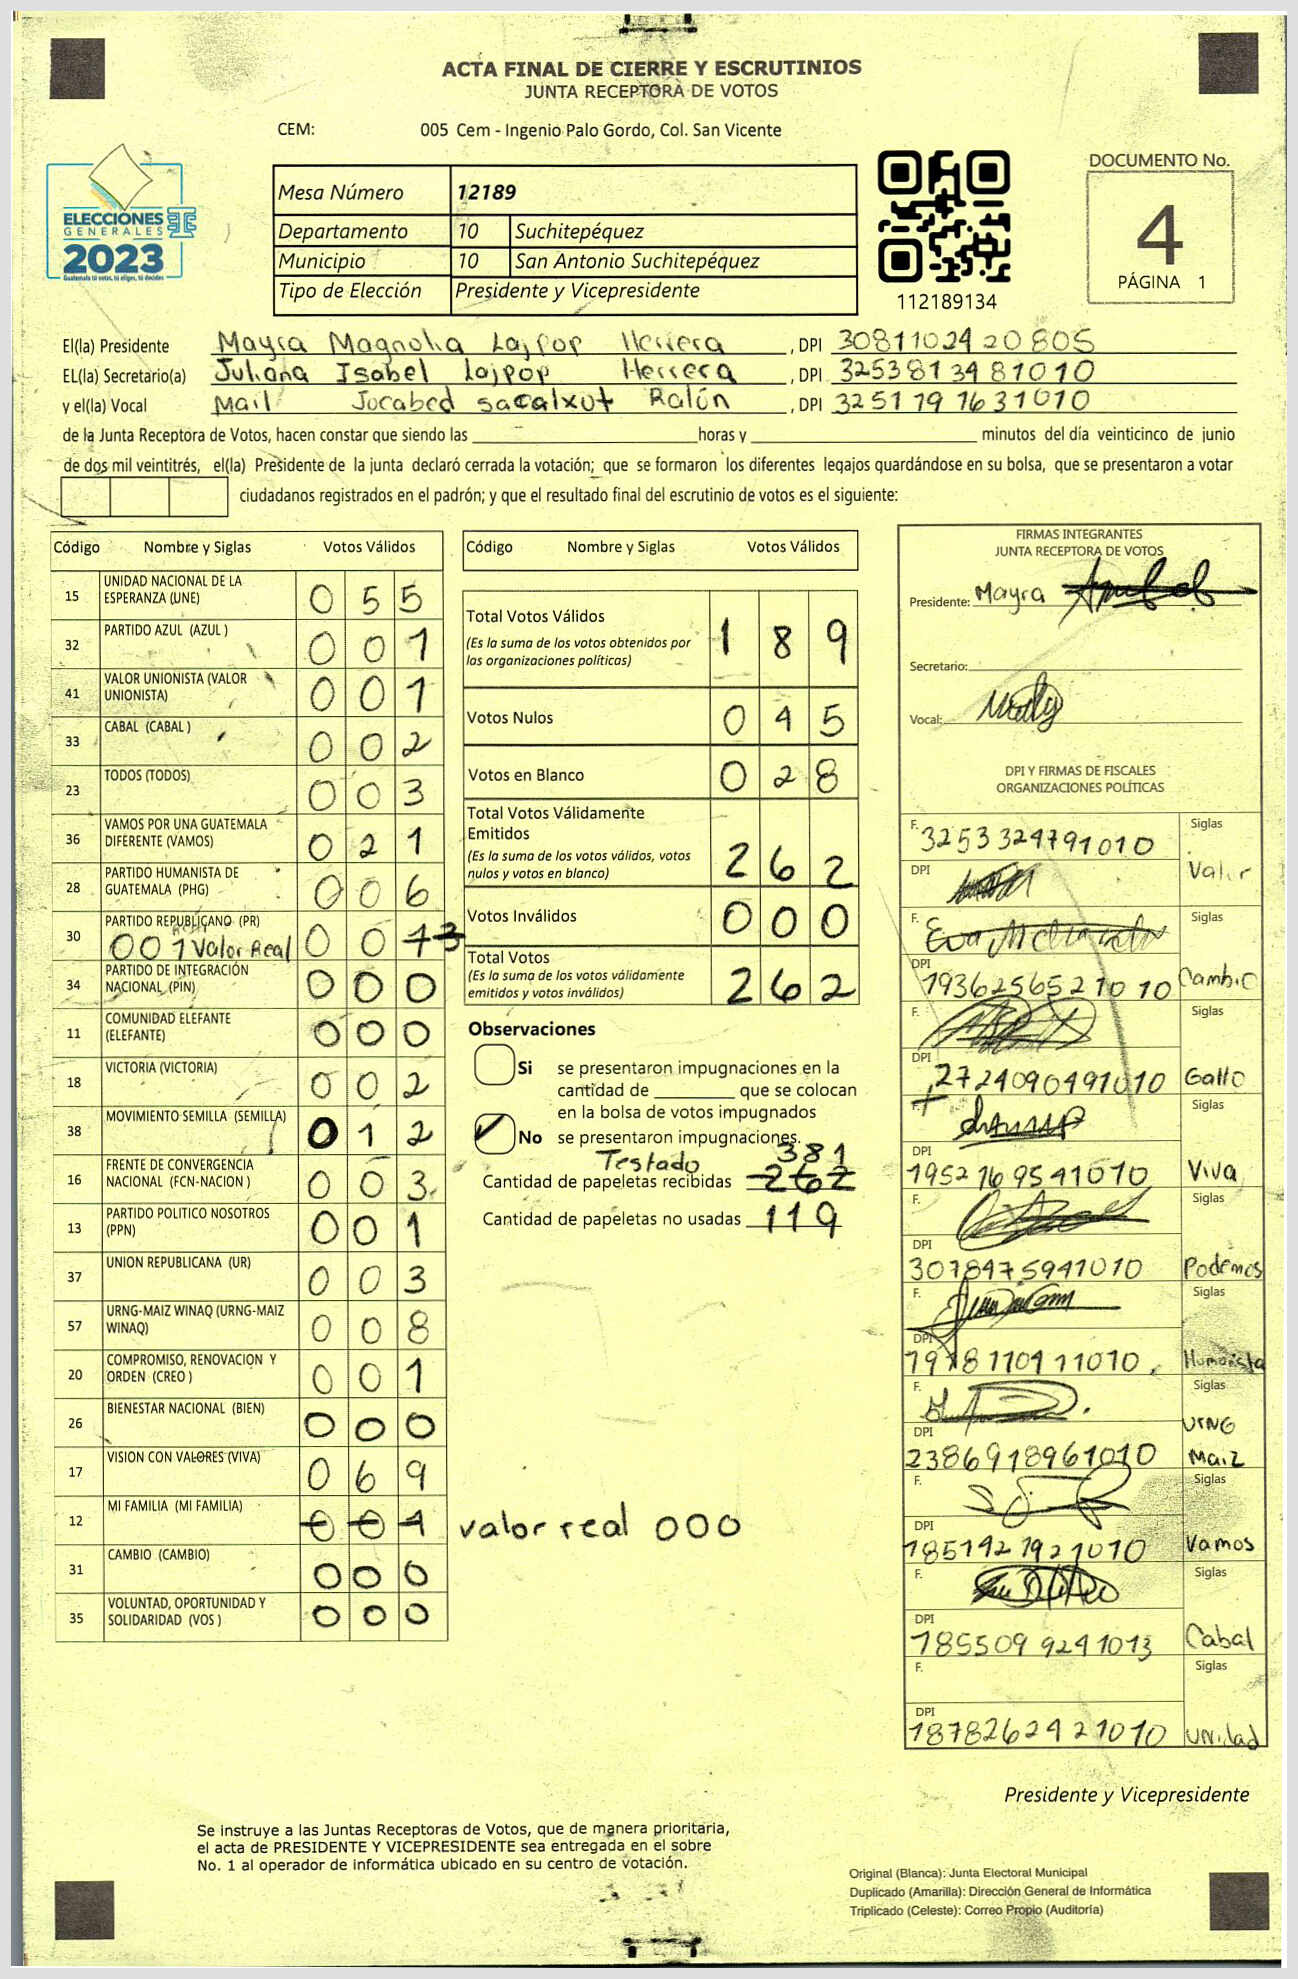 ACTA FINAL DE CIERRE Y ESCRUTINIOS
JUNTA RECEPTORA DE VOTOS
CEM: 005 Cem - Ingenio Palo Gordo, Col. San Vicente
ELECCIONES
GENERALES
2023
Guatemala tú votas, tú eliges, tú decides
Mesa Número 12189
Departamento 10 Suchitepéquez
Municipio 10 San Antonio Suchitepéquez
Tipo de Elección Presidente y Vicepresidente
112189134
DOCUMENTO No.
4
PÁGINA 1
El(la) Presidente Mayra Magnolia Lajpop Herrera , DPI 3081102420805
EL(la) Secretario(a) Juliana Isabel Lajpop Herrera , DPI 3253813481010
y el(la) Vocal Mail Jocabed sacalxut Ralón , DPI 3251791631010
de la Junta Receptora de Votos, hacen constar que siendo las horas y minutos del día veinticinco de junio
de dos mil veintitrés, el(la) Presidente de la junta declaró cerrada la votación; que se formaron los diferentes legajos quardándose en su bolsa, que se presentaron a votar
ciudadanos registrados en el padrón; y que el resultado final del escrutinio de votos es el siguiente:
Código Nombre y Siglas Votos Válidos
15 UNIDAD NACIONAL DE LA ESPERANZA (UNE) 0 5 5
32 PARTIDO AZUL (AZUL ) 0 0 1
41 VALOR UNIONISTA (VALOR UNIONISTA) 0 0 1
33 CABAL (CABAL ) 0 0 2
23 TODOS (TODOS) 0 0 3
36 VAMOS POR UNA GUATEMALA DIFERENTE (VAMOS) 0 2 1
28 PARTIDO HUMANISTA DE GUATEMALA (PHG) 0 0 6
30 PARTIDO REPUBLICANO (PR) 0 0 1 3
001 Valor Real
34 PARTIDO DE INTEGRACIÓN NACIONAL (PIN) 0 0 0
11 COMUNIDAD ELEFANTE (ELEFANTE) 0 0 0
18 VICTORIA (VICTORIA) 0 0 2
38 MOVIMIENTO SEMILLA (SEMILLA) 0 1 2
16 FRENTE DE CONVERGENCIA NACIONAL (FCN-NACION ) 0 0 3
13 PARTIDO POLITICO NOSOTROS (PPN) 0 0 1
37 UNION REPUBLICANA (UR) 0 0 3
57 URNG-MAIZ WINAQ (URNG-MAIZ WINAQ) 0 0 8
20 COMPROMISO, RENOVACION Y ORDEN (CREO ) 0 0 1
26 BIENESTAR NACIONAL (BIEN) 0 0 0
17 VISION CON VALORES (VIVA) 0 6 9
12 MI FAMILIA (MI FAMILIA) 0 0 1 valor real 000
31 CAMBIO (CAMBIO) 0 0 0
35 VOLUNTAD, OPORTUNIDAD Y SOLIDARIDAD (VOS ) 0 0 0
Código Nombre y Siglas Votos Válidos
Total Votos Válidos 1 8 9
(Es la suma de los votos obtenidos por
las organizaciones políticas)
Votos Nulos 0 4 5
Votos en Blanco 0 2 8
Total Votos Válidamente
Emitidos 2 6 2
(Es la suma de los votos válidos, votos
nulos y votos en blanco)
Votos Inválidos 0 0 0
Total Votos 2 6 2
(Es la suma de los votos válidamente
emitidos y votos inválidos)
Observaciones
Si se presentaron impugnaciones en la
cantidad de que se colocan
en la bolsa de votos impugnados
No se presentaron impugnaciones.
Testado 381
Cantidad de papeletas recibidas 262
Cantidad de papeletas no usadas 119
FIRMAS INTEGRANTES
JUNTA RECEPTORA DE VOTOS
Presidente: Mayra
Secretario:
Vocal:
DPI Y FIRMAS DE FISCALES
ORGANIZACIONES POLÍTICAS
F. 3253324791010 Siglas
DPI Valor
F. Siglas
DPI 1936256521010 Cambio
F. Siglas
DPI 2724090491010 Gallo
F. Siglas
DPI 1952169541010 Viva
F. Siglas
DPI 3078475941010 Podemos
F. Siglas
DPI 1978110911010 Humanista
F. Siglas
DPI 2386918961010 URNG Maiz
F. Siglas
DPI 1851421921010 Vamos
F. Siglas
DPI 1855099241013 Cabal
F. Siglas
DPI 1878262421010 Unidad
Presidente y Vicepresidente
Se instruye a las Juntas Receptoras de Votos, que de manera prioritaria,
el acta de PRESIDENTE Y VICEPRESIDENTE sea entregada en el sobre
No. 1 al operador de informática ubicado en su centro de votación.
Original (Blanca): Junta Electoral Municipal
Duplicado (Amarilla): Dirección General de Informática
Triplicado (Celeste): Correo Propio (Auditoría)